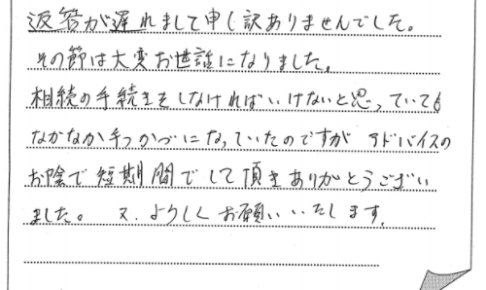 返答が遅れまして申し訳ありませんでした。
その節は大変お世話になりました。
相続の手続きをしなければいけないと思っていても
なかなか手つかづになっていたのですが アドバイスの
お陰で短期間でして頂きありがとうござい
ました。 又、よろしくお願いいたします。